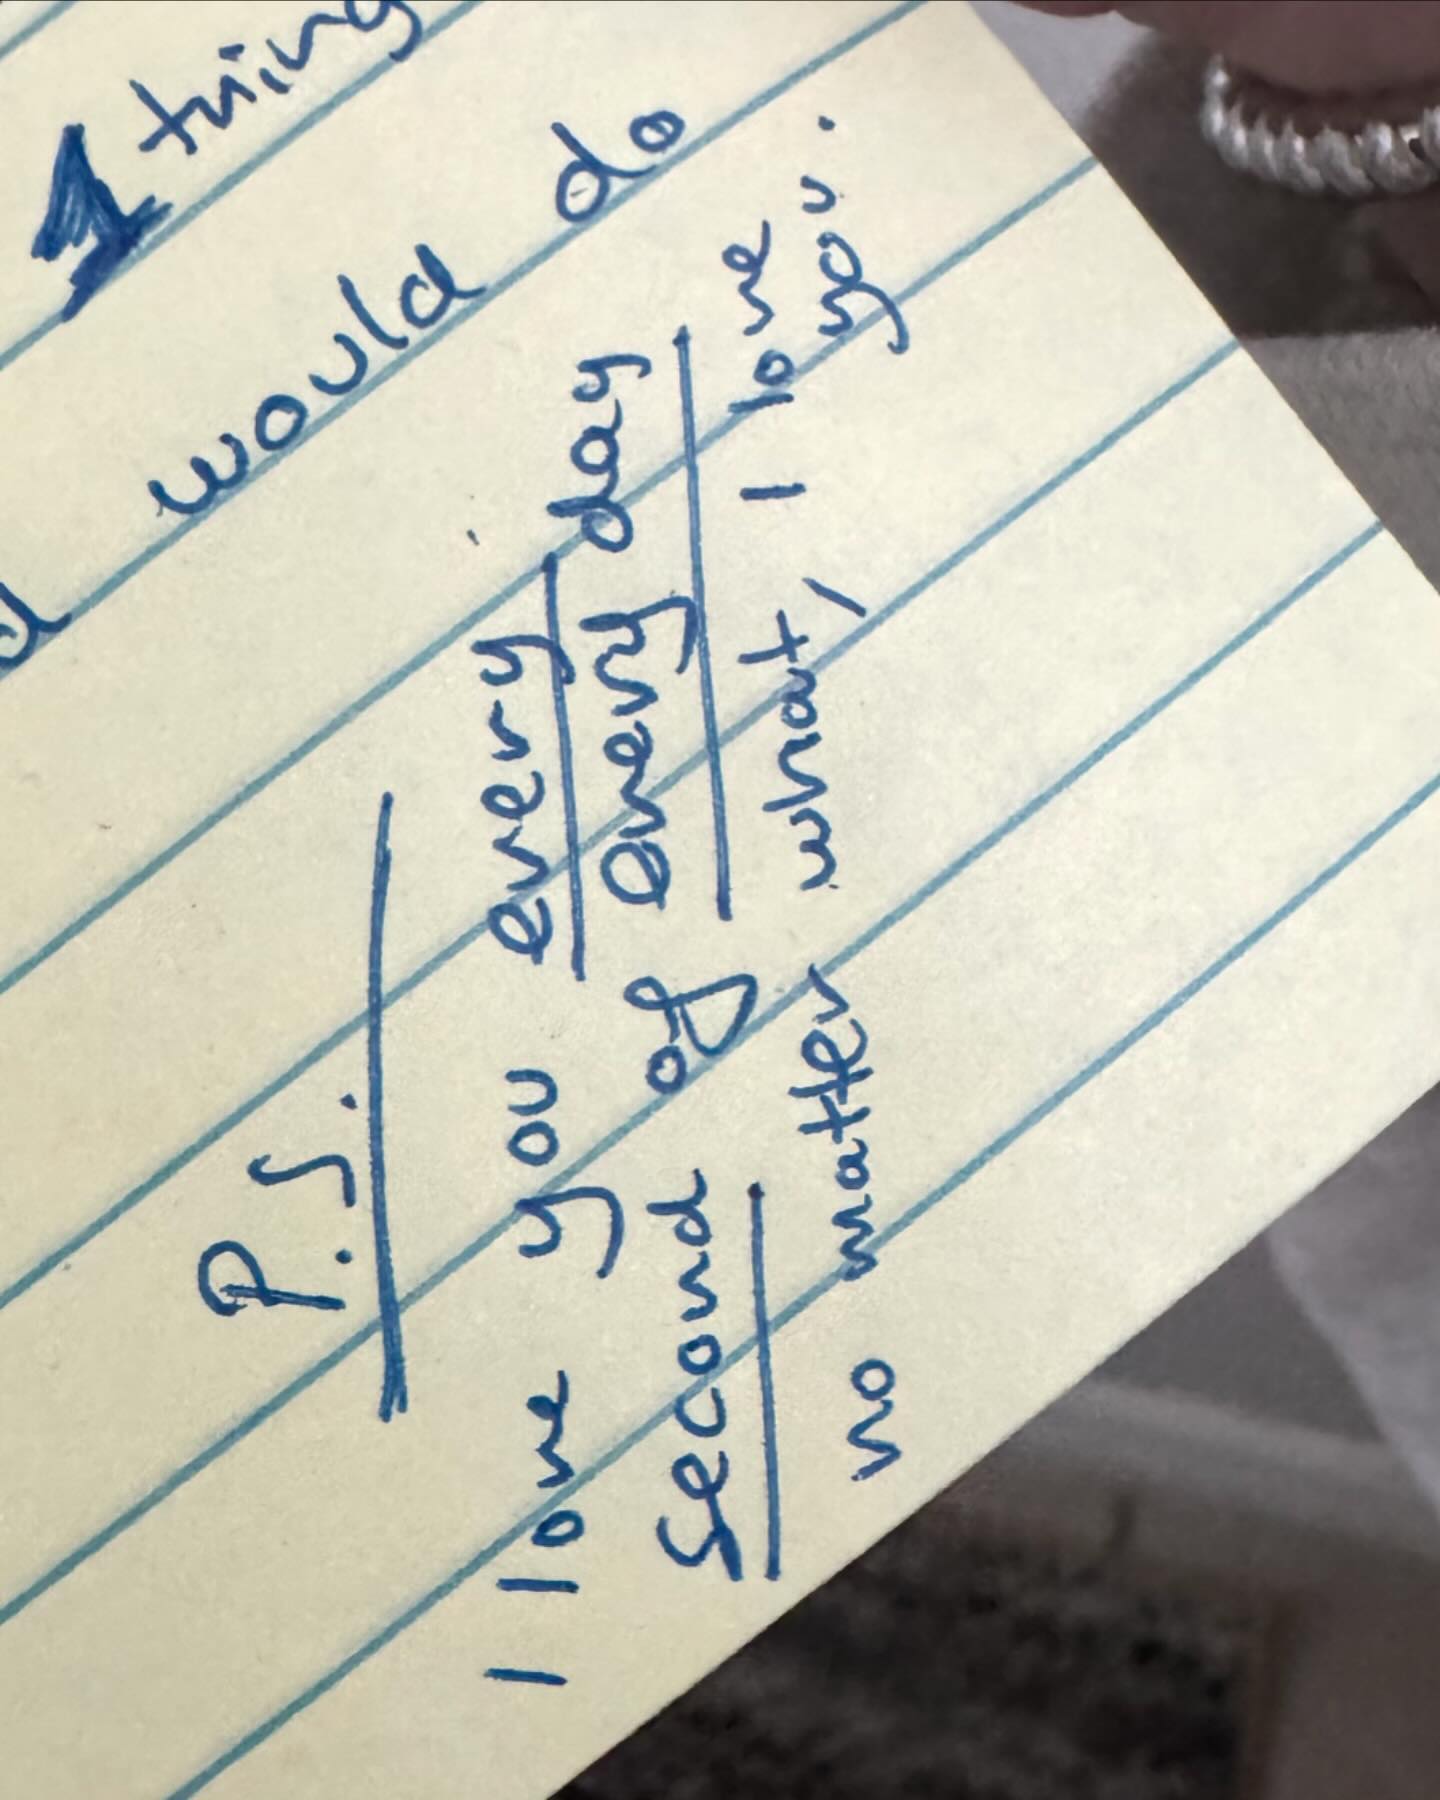 1 thing
would do
P.S.
I love you every
second of every day
no matter what, I love
you.